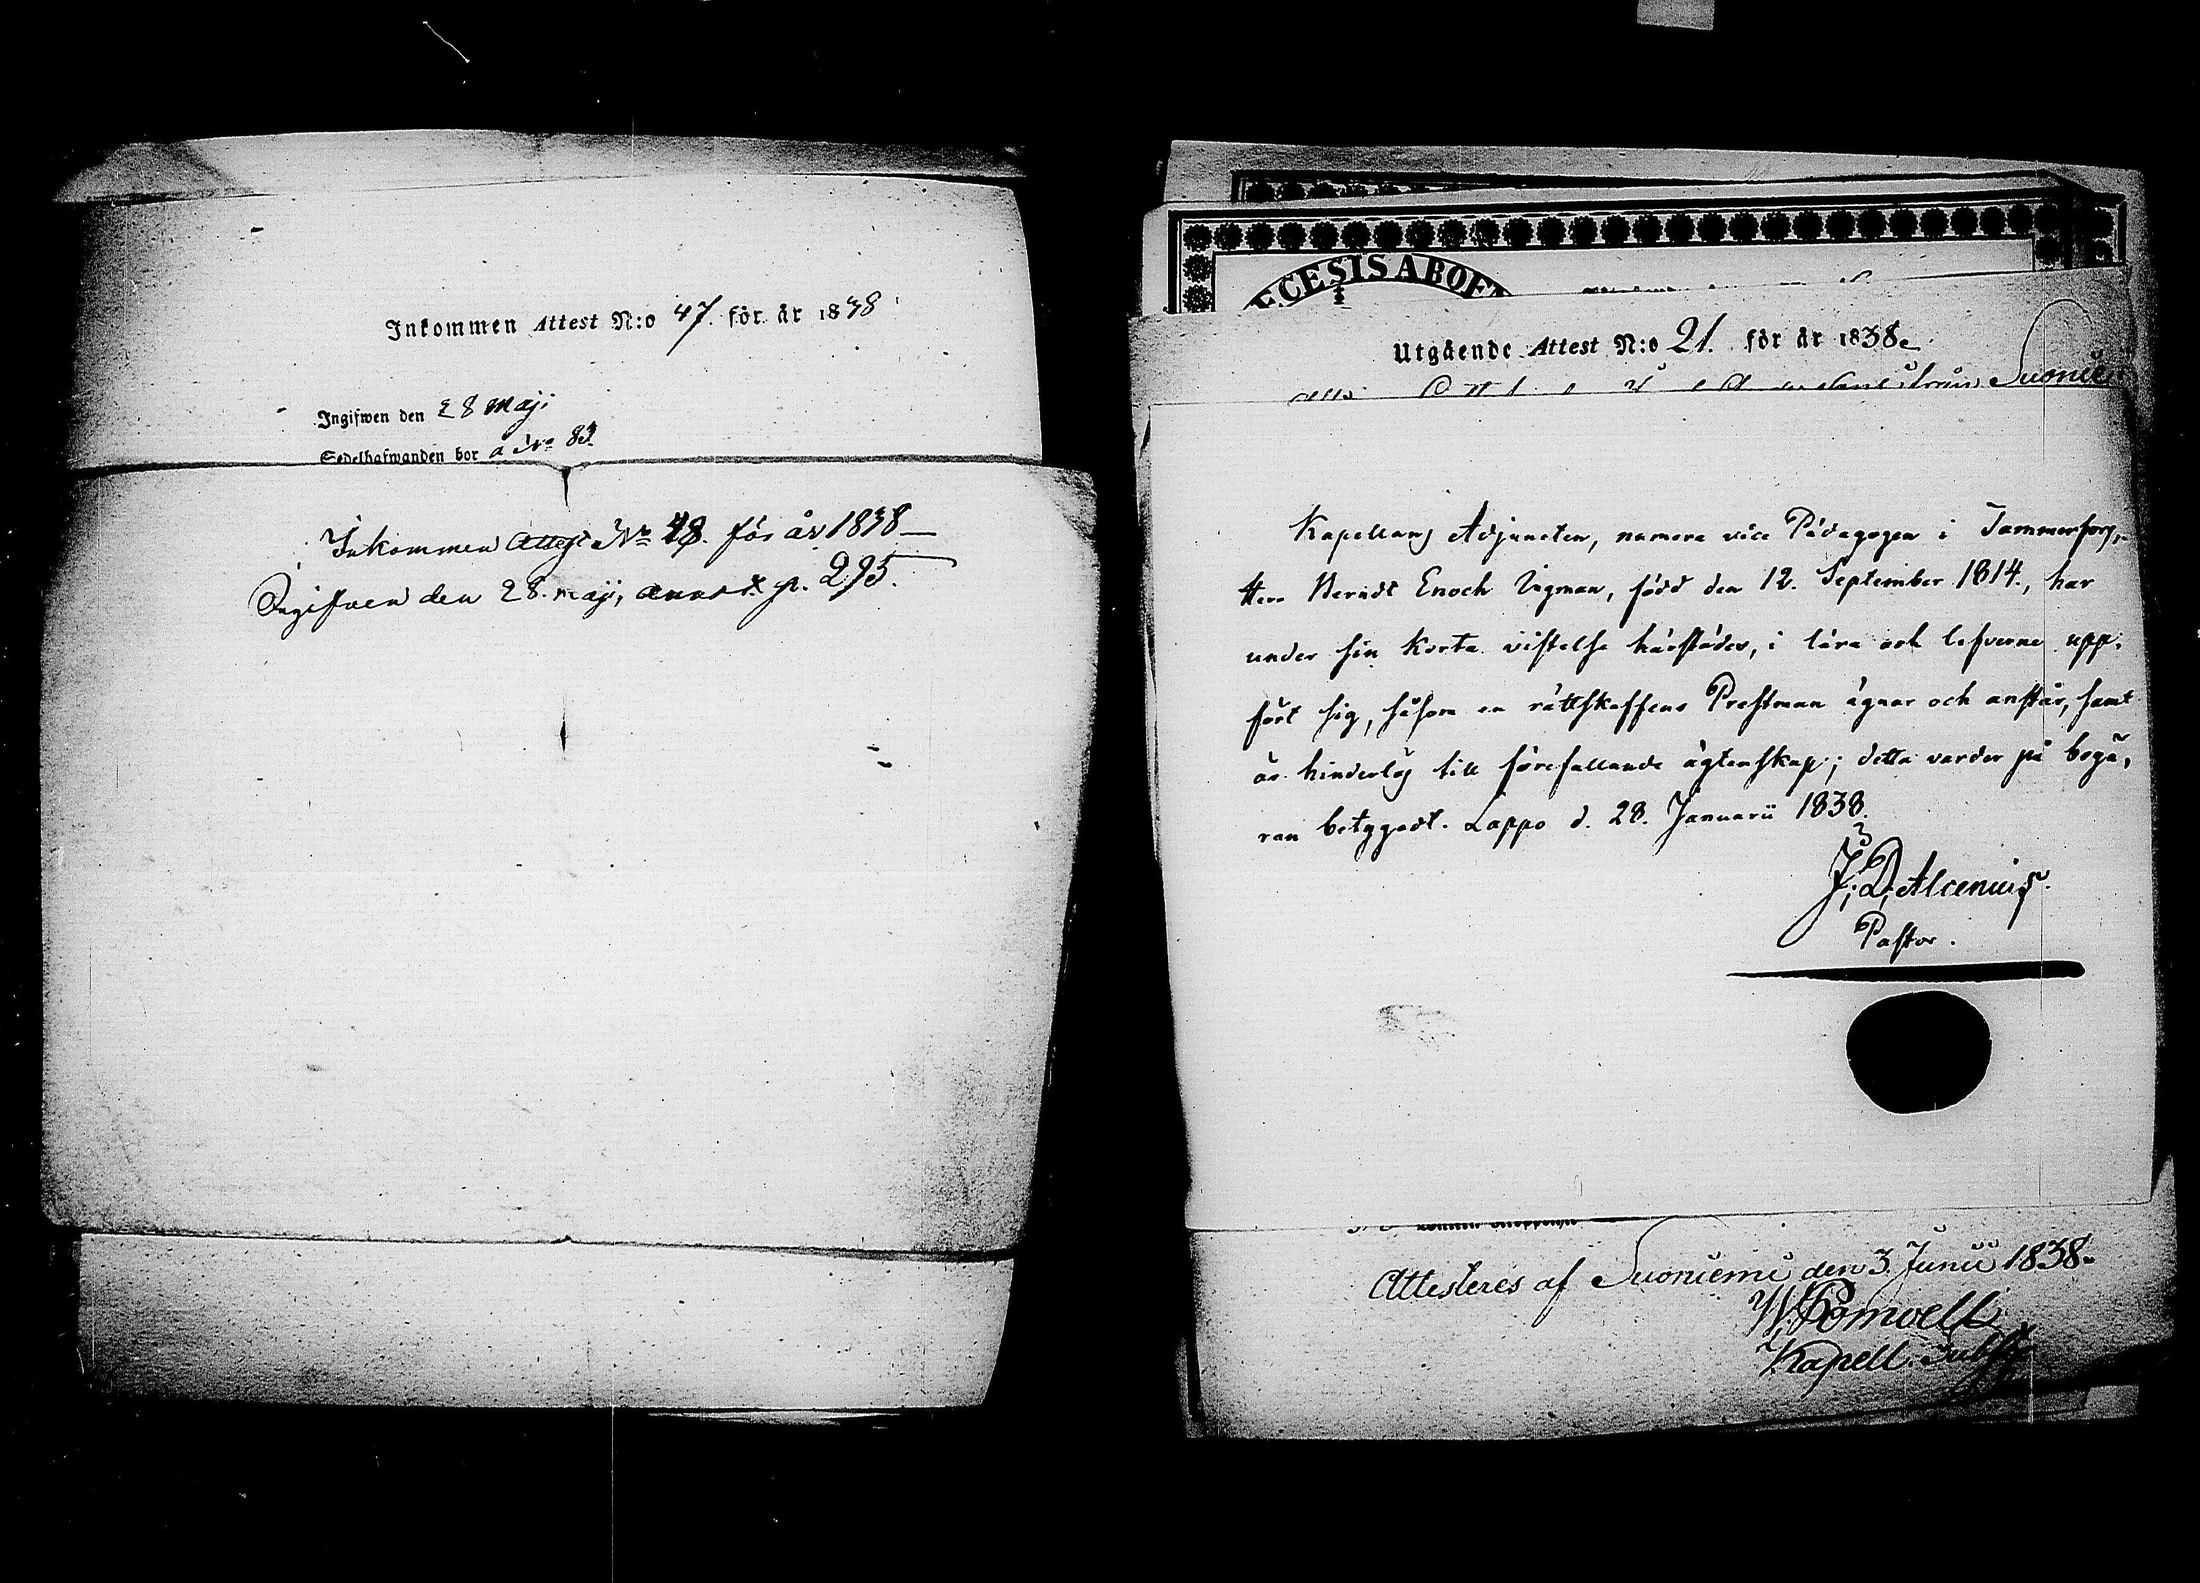 Inkommen Attest N:o 47. för år 1838
Ingifwen den 28 Maji
Sedelhafwanden bor å No 83
Inkommen Attest No 48. för år 1838
Ingifven den 28. Maji, p. 295.
ECESIS ABOE
Utgående Attest N:o 21. för år 1838
från Suoniem
Kapellans Adjuncten, numera vice Pädagogen i Tammerfors,
Herr Berndt Enoch Ingman, född den 12. September 1814., har
under sin korta vistelse härstädes, i lära och lefverne upp-
fört sig, såsom en rättskaffens Prestman ägnar och anstår, samt
är hinderlös till förefallande ägtenskap; detta varder på begä-
ran betygadt. Lappo d. 28. Januarii 1838.
J. D. Alcenius.
Pastor.
Attesteres af Suoniemi den 3. Junii 1838.
W. Pomoell
Kapell. Subst